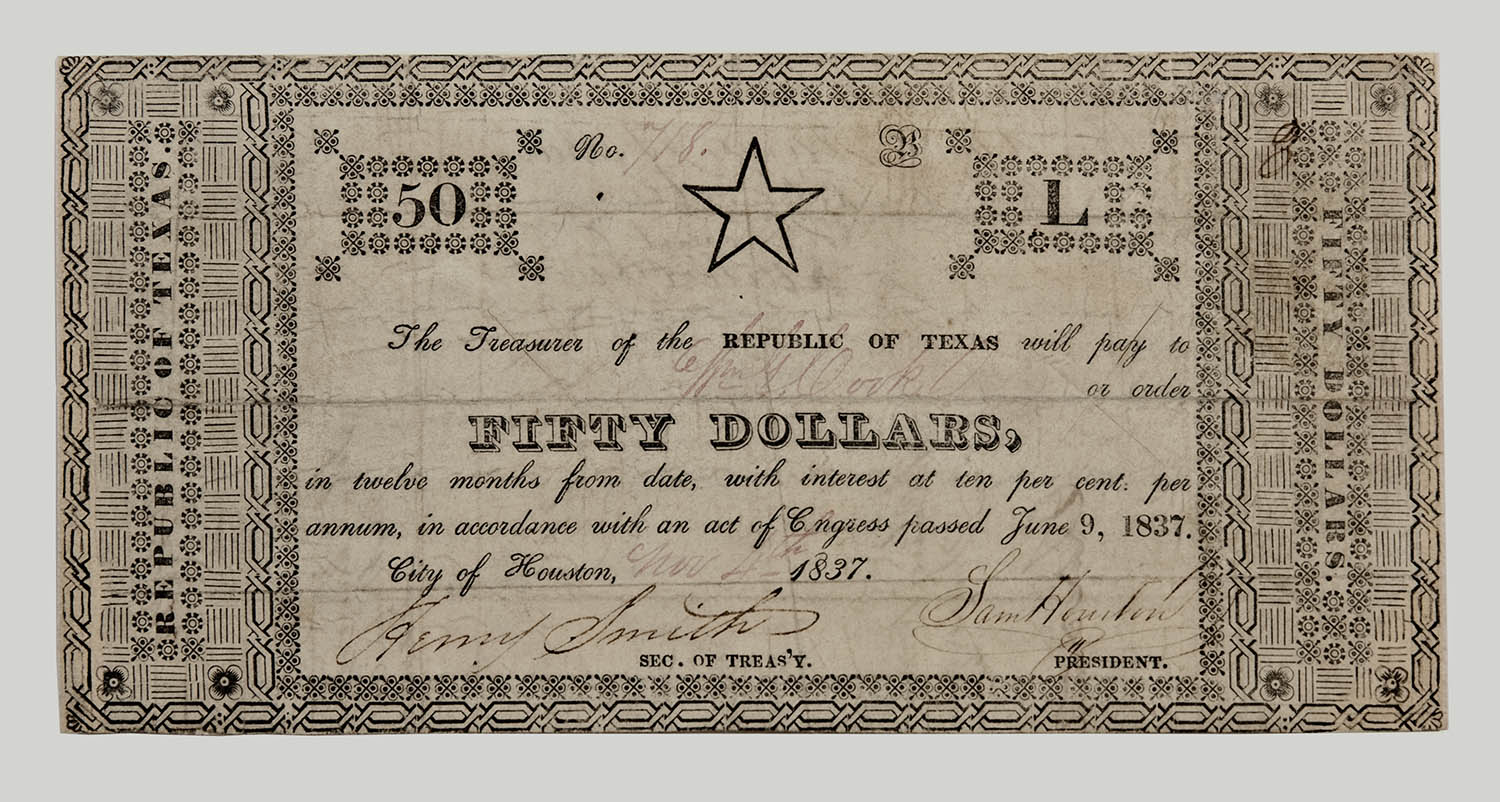 No. 718. B
50 L
REPUBLIC OF TEXAS.
The Treasurer of the REPUBLIC OF TEXAS will pay to
Wm G Cooke
or order
FIFTY DOLLARS,
in twelve months from date, with interest at ten per cent. per
annum, in accordance with an act of Congress passed June 9, 1837.
City of Houston, Nov 4th 1837.
Henry Smith Sam Houston
SEC. OF TREAS'Y. PRESIDENT.
FIFTY DOLLARS.